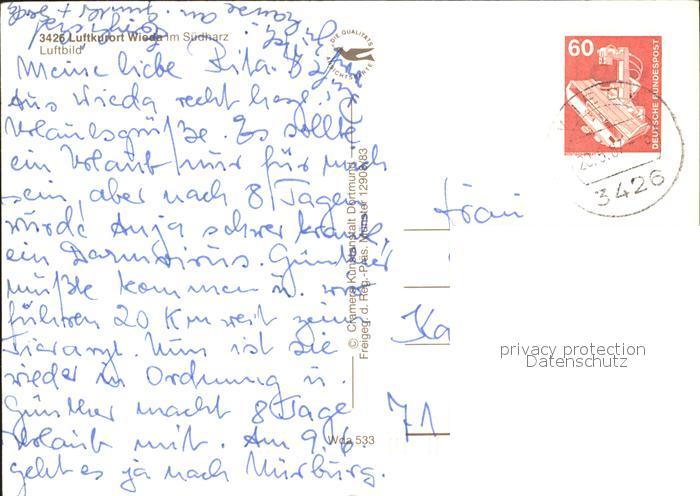 3426 Luftkurort Wieda im Südharz
Luftbild
DIE QUALITÄTS
ANSICHTSKARTE
Meine liebe Rita.
Aus Wieda recht herzl.
Urlaubsgrüße. Es sollte
ein Urlaub nur für mich
sein, aber nach 8 Tagen
wurde Anja schwer krank,
ein Darmvirus. Günther
mußte kommen u. wir
fuhren 20 Km weit zum
Tierarzt. Nun ist sie
wieder in Ordnung u.
Günther macht 8 Tage
Urlaub mit. Am 9.6.
geht es ja nach Nürburg.
© Cramers Kunstanstalt Dortmund
Freigeg. d. Reg.-Präs. Münster 12908/83
Wda 533
60
DEUTSCHE BUNDESPOST
3426
Frau
Ka
71
privacy protection
Datenschutz